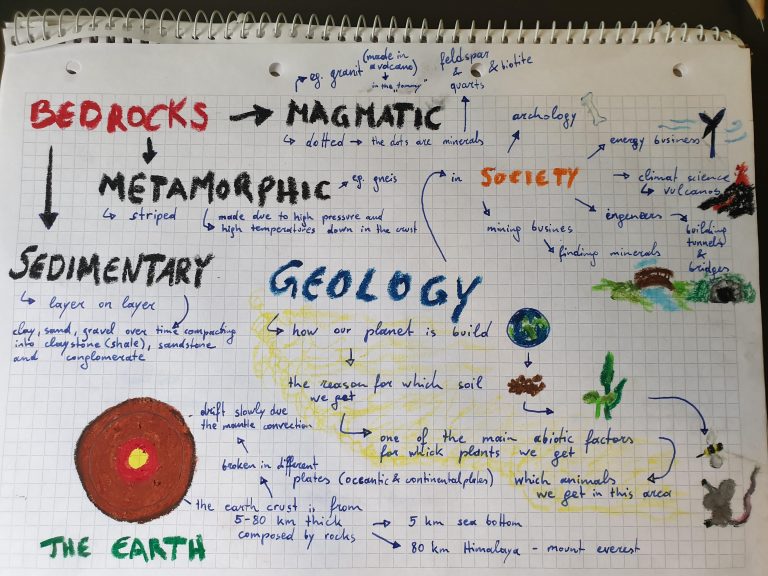 BEDROCKS → MAGMATIC
↱ eg. granit
(made in
a vulcano)
in the "tommy"
feldspar
&
quarts
& biotite
↳ dotted → the dots are minerals
METAMORPHIC → eg. gneis
↳ striped
↳ made due to high pressure and
high temperatures down in the crust
SEDIMENTARY
↳ layer on layer
clay, sand, gravel over time compacting
into claystone (shale), sandstone
and conglomerate
in SOCIETY
archology
energy business
→ climat science
↳ vulcanos
engeneers
building
tunnels
&
bridges
mining busines
finding minerals
GEOLOGY
↳ how our planet is build
the reason for which soil
we get
one of the main abiotic factors
for which plants we get
which animals
we get in this area
THE EARTH
the earth crust is from
5-80 km thick
composed by rocks
→ 5 km sea bottom
→ 80 km Himalaya - mount everest
broken in different
plates (oceantic & continental plates)
drift slowly due
the mantle convection